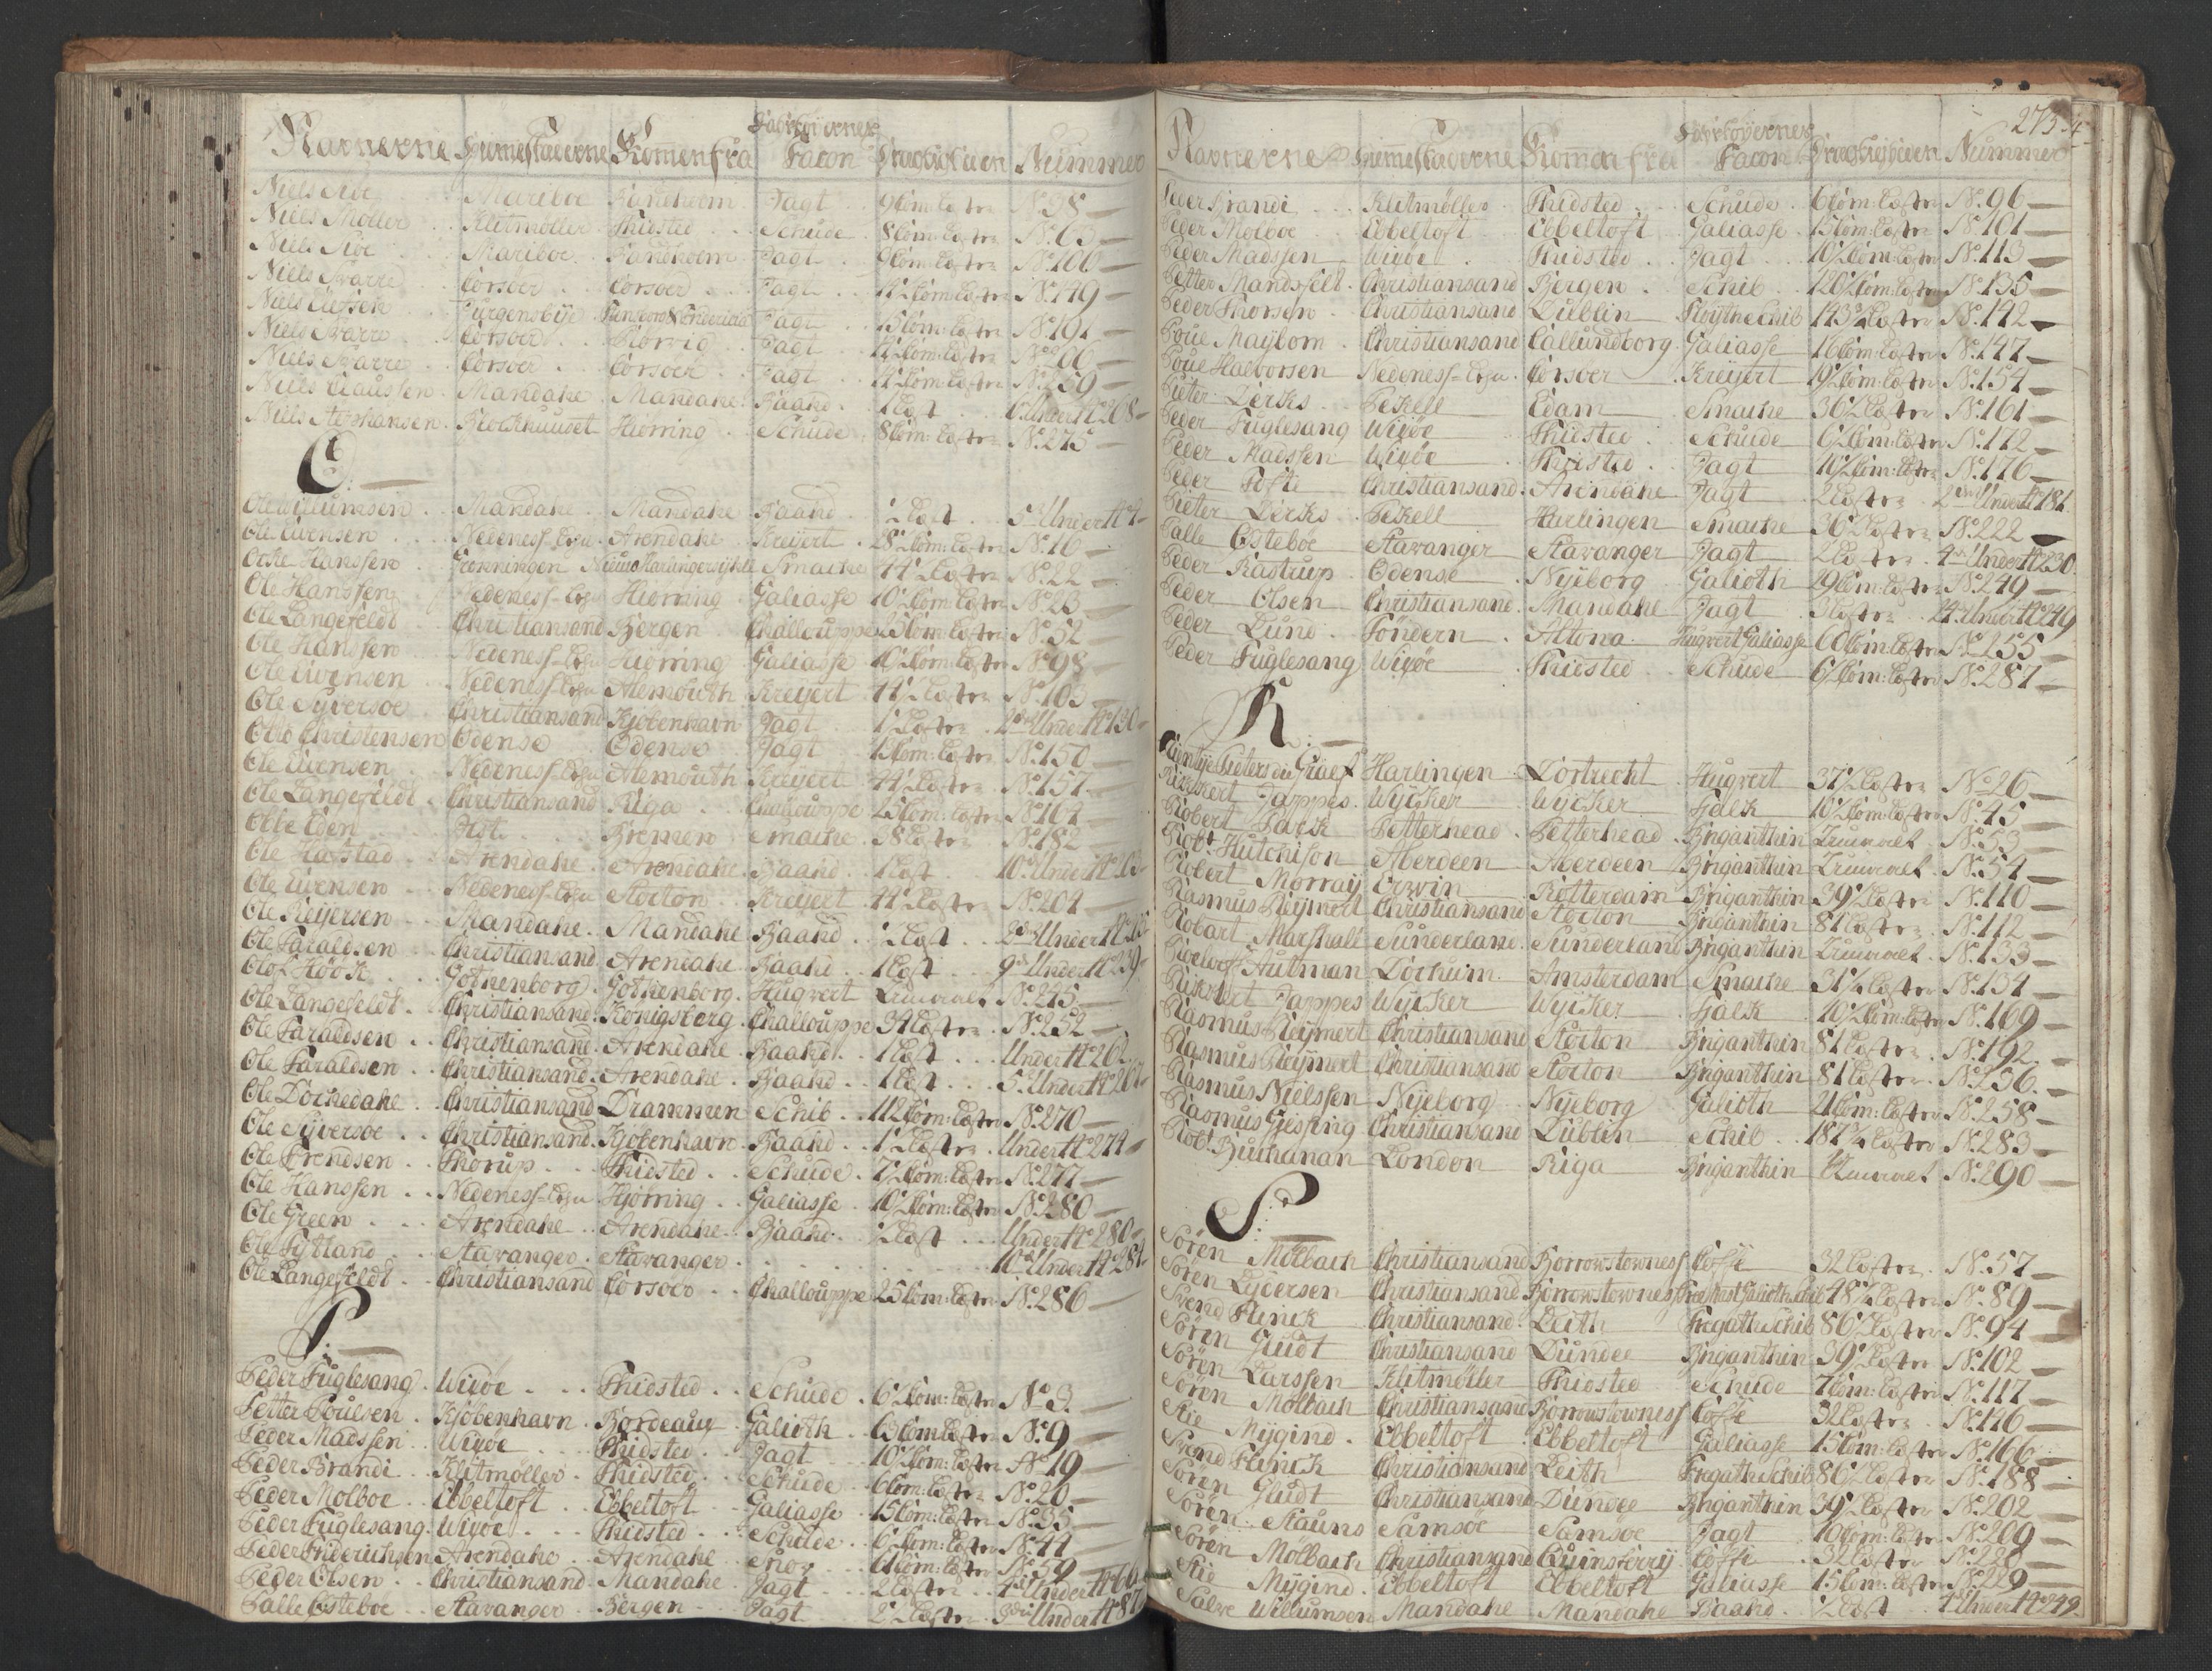 Navnerne Hiemstæderne Kommen fra Fartöyernes Facon Drægtigheden Nummer
Niels Siöe Mariboe Bandholm Jagt 9 Com: Læster No. 38
Niels Möller Klitmöller Thisted Schude 8 Com: Læster No. 63
Niels Siöe Mariboe Bandholm Jagt 9 Com: Læster No. 106
Niels Svarre Corsoer Corsoer Jagt Com: Læster No. 149
Niels Jürgensbÿe Jagt Com: Læster No. 191
Niels Svarre Corsoer Jagt Com: Læster No. 206
Niels Svarre Corsoer Corsoer Jagt Com: Læster No. 259
Niels Claussen Mandahl Mandahl Baand 1 Læst Under No. 268
Niels Stephansen Hiörring Schude 8 Com: Læster No. 275
O.
Ole Willumsen Mandahl Mandahl Baand ½ Læst 5 Under No.
Ole Evensen Nedeness-Lehn Arendahl Kreÿert Com: Læster No. 16
Hanssen Gronningen Smacke Læster No. 22
Ole Hanssen Nedeness-Lehn Hiörring Galiasse 10½ Com: Læster No. 23
Ole Langefeldt Christiansand Bergen Challouppe 25 Com: Læster No. 52
Ole Hanssen Nedeness-Lehn Hiörring Galiasse 10½ Com: Læster No. 98
Ole Evensen Nedeness-Lehn Alemouth Kreÿert 44½ Læster No. 103
Ole Sÿversoe Christiansand Kjöbenhavn Jagt 1½ Læster Under No. 130
Otto Christensen Odense Odense Jagt Com: Læster No. 150
Ole Evensen Nedeness-Lehn Alemouth Kreÿert 44½ Læster No. 157
Ole Langefeldt Christiansand Riga Challouppe 25 Com: Læster No. 164
Otte Eden Bremen Smacke 38 Læster No. 182
Ole Hafstad Arendahl Arendahl Baand 1 Læst 10 Under No.
Ole Evensen Nedeness-Lehn Stocton Kreÿert 44½ Læster No. 204
Ole Reÿersen Mandahl Mandahl Baand ½ Læst Under No.
Ole Taraldsen Christiansand Arendahl Baand 1 Læst 9 Under No. 239
Olof Höök Gothenborg Gothenborg Huqvert No. 245
Ole Langefeldt Christiansand Königsberg Challouppe 34 Læster No. 252
Ole Taraldsen Christiansand Arendahl Baand 1 Læst Under No. 262
Ole Taraldsen Christiansand Arendahl Baand 1 Læst 5 Under No. 267
Ole Dörkedahl Christiansand Drammen Schib 112 Com: Læster No. 270
Ole Sÿversoe Christiansand Kjöbenhavn Baand 1½ Læster Under No. 274
Ole Trendsen Thorup Thisted Schude Com: Læster No. 277
Ole Hanssen Nedeness-Lehn Hjörring Galiasse 10½ Com: Læster No. 280
Ole Green Arendahl Arendahl Baand ½ Læst Under No. 280
Ole Tÿtland Stavanger Stavanger 10 Under No. 284
Ole Langefeldt Christiansand Corsoer Challouppe 25 Com: Læster No. 286
P.
Peder Fuglesang Wiqöe Thisted Schude 6½ Com: Læster No. 3
Petter Poulsen Kjöbenhavn Bordeaux Galioth Com: Læster No. 9
Peder Madssen Wiqöe Thisted Jagt 10½ Com: Læster No. 19
Peder Brandi Klitmöller Thisted Schude 6 Com: Læster No. 20
Peder Molboe Ebbeltoft Ebbeltoft Galiasse 15 Com: Læster No. 35
Peder Fuglesang Wiqöe Thisted Schude 6½ Com: Læster No. 44
Peder Friderichsen Arendahl Arendahl Snov Com: Læster No. 59
Peder Olsen Christiansand Mandahl Jagt 2 Læster Under No. 66
Palle Östeboe Stavanger Bergen Jagt 2 Læster 3 Under No. 87
273
Navnerne Hiemstæderne Kommen fra Fartöyernes Facon Drægtigheden Nummer
Peder Brandi Klitmöller Thisted Schude 6 Com: Læster No. 96
Peder Molboe Ebbeltoft Ebbeltoft Galiasse 15 Com: Læster No. 101
Peder Madssen Wiqöe Thisted Jagt 10½ Com: Læster No. 113
Petter Mandsfelt Christiansand Bergen Schib Com: Læster No. 135
Peder Thorsen Christiansand Dublin Floÿthe Schib 143½ Læster No. 142
Poul Maÿbom Christiansand Callundborg Galiasse 16 Com: Læster No. 147
Poul Halvorsen Nedeness-Lehn Corsoer Kreÿert 19½ Com: Læster No. 154
Pieter Dercks Pekell Edam Smacke 36½ Læster No. 161
Peder Fuglesang Wiqöe Thisted Schude 6½ Com: Læster No. 172
Peder Madssen Wiqöe Thisted Jagt 10½ Com: Læster No. 176
Peder Toste Christiansand Arendahl Jagt 2 Læster 2 Under No. 181
Pieter Dercks Pekell Harlingen Smacke 36½ Læster No. 222
Palle Östeboe Stavanger Stavanger Jagt 2 Læster 4 Under No. 230
Peder Rastrup Odense Nÿeborg Galioth 29 Com: Læster No. 249
Peder Olsen Christiansand Mandahl Jagt 3 Læster Under No. 249
Peder Lund Töndern Altona Huqvert Galiasse 60 Com: Læster No. 255
Peder Fuglesang Wiqöe Thisted Schude 6½ Com: Læster No. 287
R.
Rientje Pieters du Graef Harlingen Dortrecht Huqvert 37½ Læster No. 26
Rickert Jappes Wÿcker Wÿcker Tjalk 10½ Com: Læster No. 45
Robert Jack Petterhead Petterhead Briganthin No. 53
Robt. Hutchison Aberdeen Aberdeen Briganthin No. 54
Robert Morraÿ Rotterdam Briganthin 39½ Læster No. 110
Rasmus Reÿmert Christiansand Stocton Briganthin 81 Læster No. 112
Robart Marshall Sunderland Sunderland Briganthin No. 133
Roelwoff Autman Dorkum Amsterdam Smacke 31½ Læster No. 134
Rickert Jappes Wÿcker Wÿcker Tjalk 10½ Com: Læster No. 169
Rasmus Reÿmert Christiansand Stocton Briganthin 81 Læster No. 192
Rasmus Reÿmert Christiansand Stocton Briganthin 81 Læster No. 236
Rasmus Nielssen Nÿeborg Nÿeborg Galioth 21 Com: Læster No. 258
Rasmus Giesping Christiansand Dublin Schib 187½ Læster No. 283
Robt. Buchanan London Riga Briganthin No. 290
S.
Sören Molbach Christiansand Borrowstowness Coffe 32 Læster No. 57
Sören Dÿversen Christiansand Borrowstowness 48½ Læster No. 89
Svend Flinck Christiansand Leith Fregatte Schib 86½ Læster No. 94
Sören Gludt Christiansand Dundee Briganthin 39½ Læster No. 102
Sören Larssen Klitmöller Thisted Schude 7 Com: Læster No. 117
Sören Molbach Christiansand Borrowstowness Coffe 32 Læster No. 146
Stie Mÿgind Ebbeltoft Ebbeltoft Galiasse 15 Com: Læster No. 166
Svend Flinck Christiansand Leith Fregatte Schib 86½ Læster No. 188
Sören Gludt Christiansand Dundee Briganthin 39½ Læster No. 202
Sören Stauns Samsöe Samsöe Jagt 10 Com: Læster No. 209
Sören Molbach Christiansand Quinsferrÿ Coffe 32 Læster No. 220
Stie Mÿgind Ebbeltoft Ebbeltoft Galiasse 15 Com: Læster No. 229
Salve Willumsen Mandahl Mandahl Baand ½ Læst Under No. 249